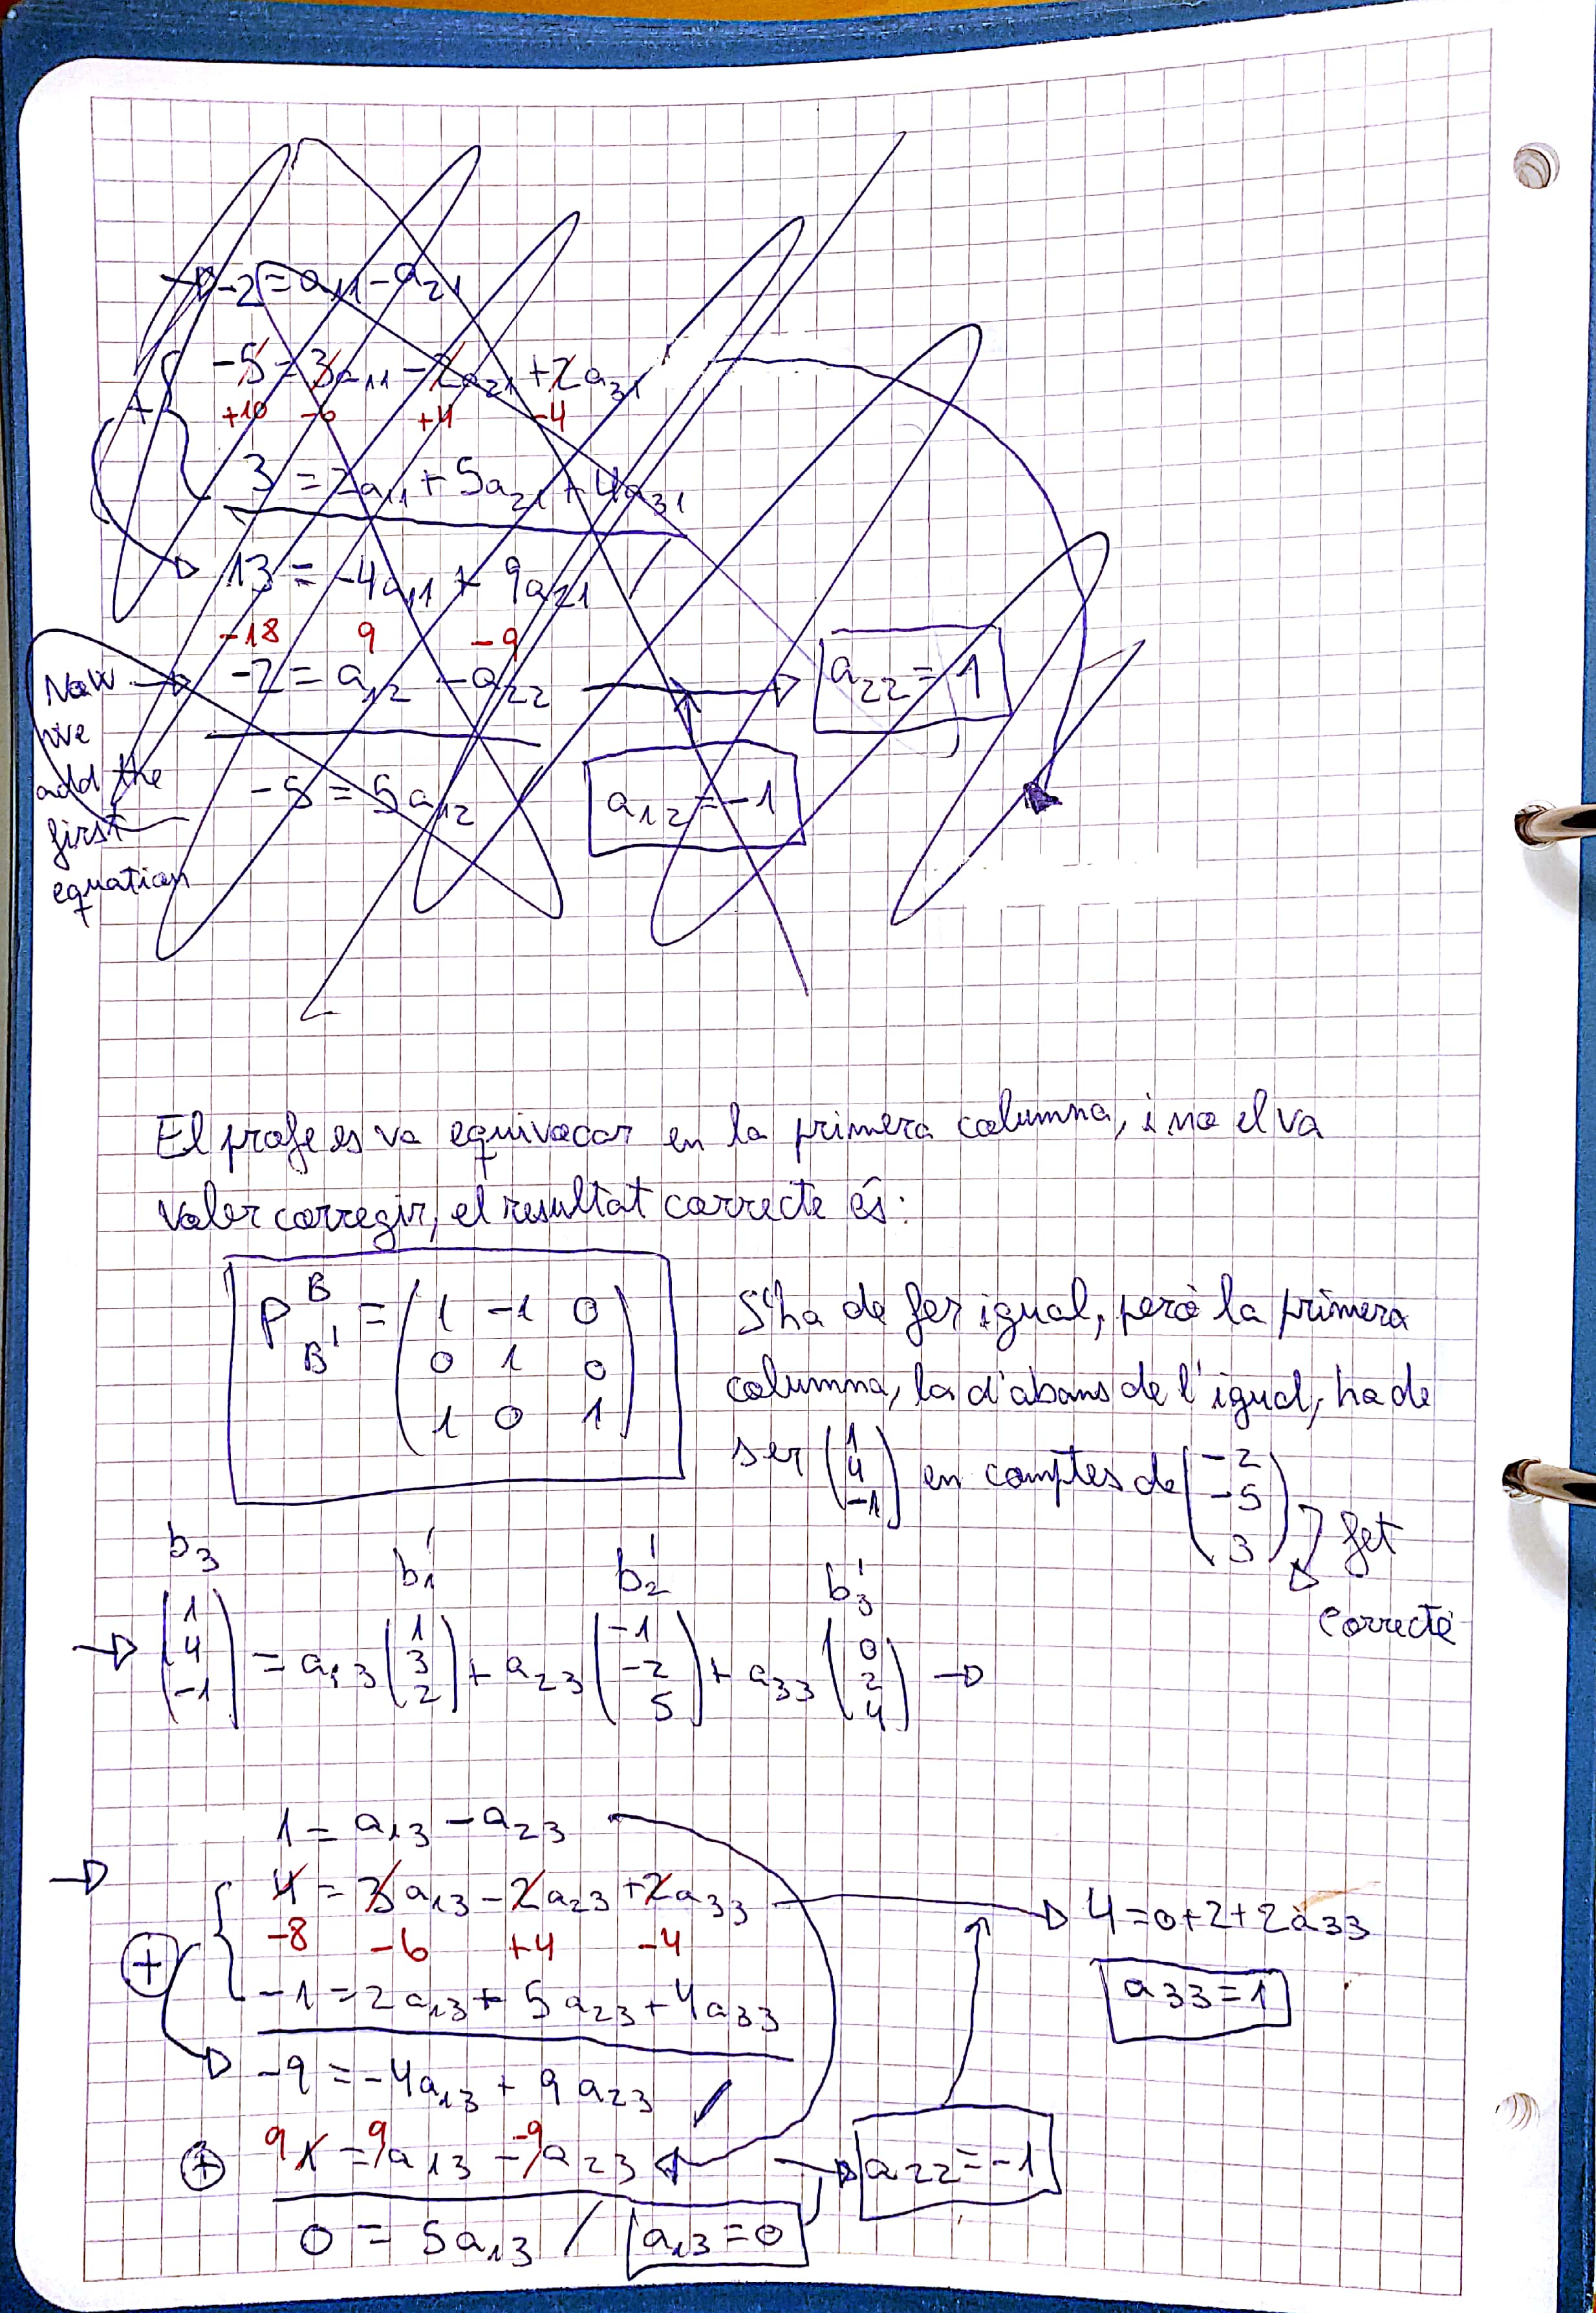 -2 = a₁₁ - a₂₁
-5 = 3a₁₁ - 2a₂₁ + 2a₃₁
+10 -6 +4 -4
3 = 2a₁₁ + 5a₂₁ + 4a₃₁
13 = -4a₁₁ + 9a₂₁
-18 9 -9
-2 = a₁₂ - a₂₂
a₂₂ = 1
Now we add the first equation
-5 = 5a₁₂
a₁₂ = -1
El profe es va equivocar en la primera columna, i no el va
voler corregir, el resultat correcte és:
P B B' = ( 1 -1 0
0 1 0
1 0 1 )
S'ha de fer igual, però la primera
columna, la d'abans de l'igual, ha de
ser (1 4 -1) en comptes de (-2 -5 3)
fet
correcte
b₃ b₁' b₂' b₃'
→ (1 4 -1) = a₁₃ (1 3 2) + a₂₃ (-1 -2 5) + a₃₃ (0 2 4) →
→ 1 = a₁₃ - a₂₃
4 = 3a₁₃ - 2a₂₃ + 2a₃₃ → 4 = 0 + 2 + 2a₃₃
-8 -6 +4 -4
a₃₃ = 1
+ -1 = 2a₁₃ + 5a₂₃ + 4a₃₃
-9 = -4a₁₃ + 9a₂₃
+ 9 1 = 9a₁₃ -9a₂₃ → a₂₂ = -1
0 = 5a₁₃ / a₁₃ = 0